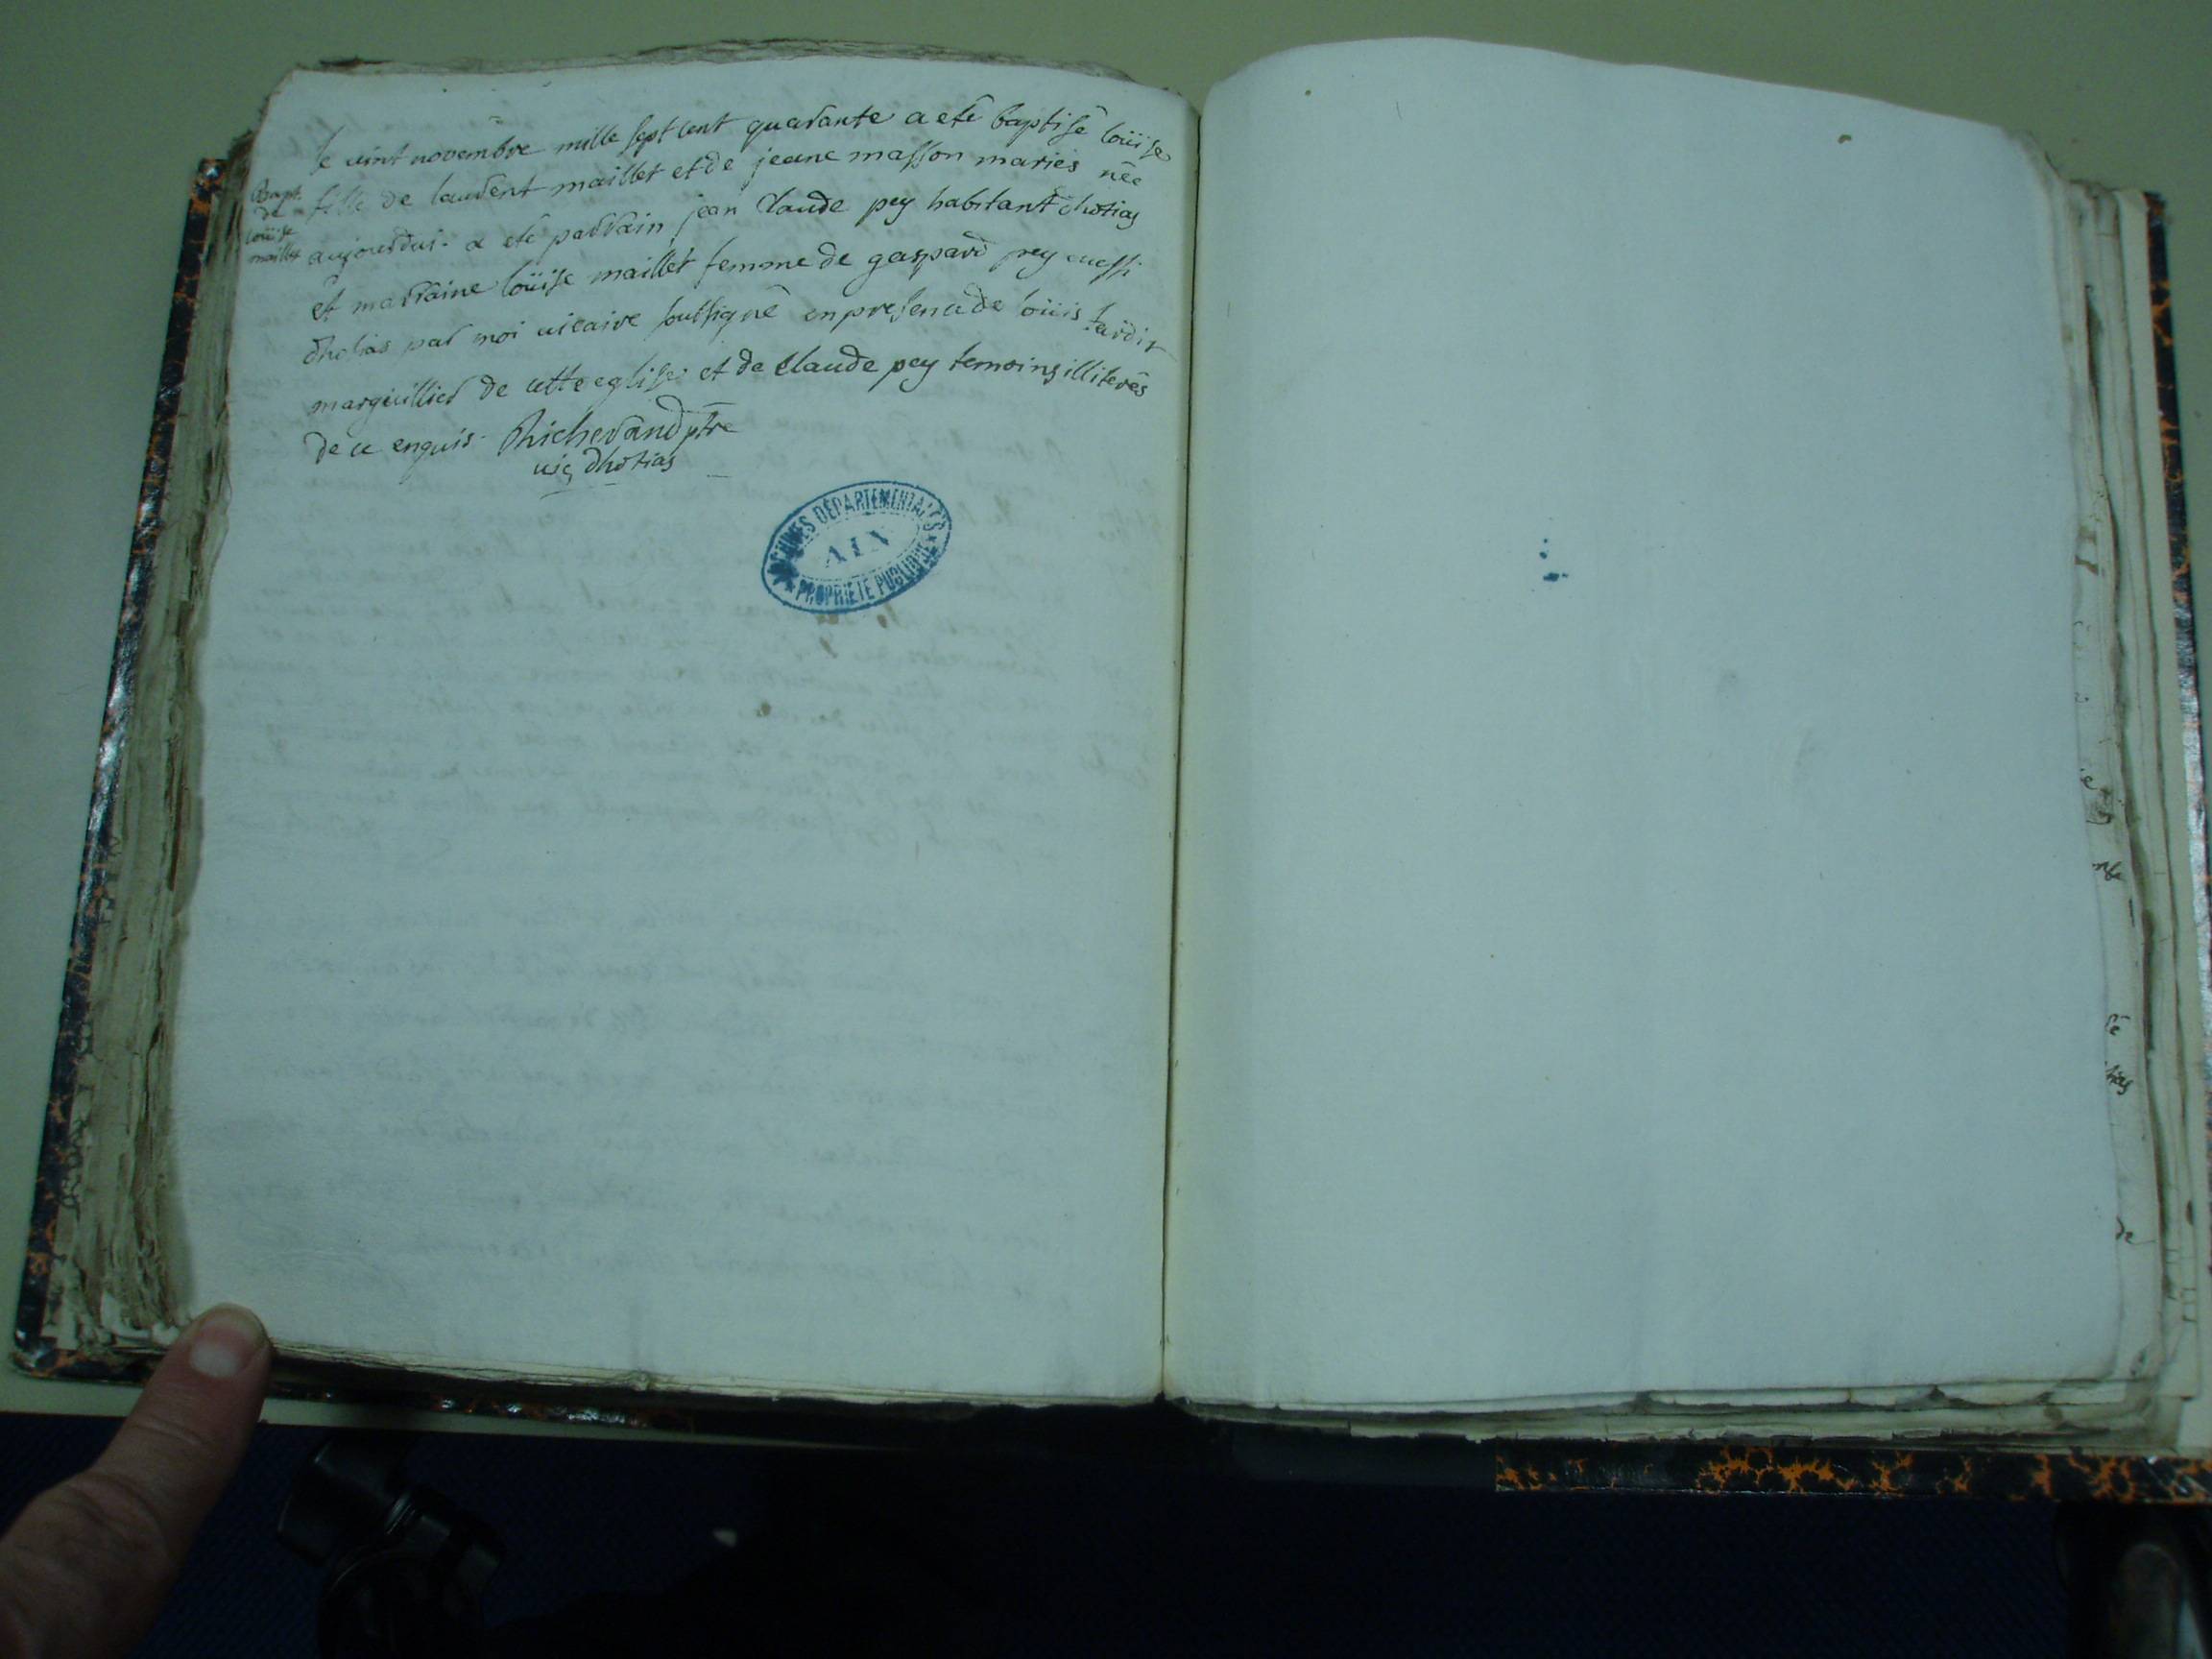 Bapt.
de
loüise
maillet
le vint novembre mille sept cent quarante a eté baptisé loüise
fille de laurent maillet et de jeane masson mariés née
aujourdui. a eté parrain jean Claude pey habitant dhotias
et marraine loüise maillet femme de gaspard pey aussi
dhotias par moi vicaire soussigné en presence de loüis tardir
marguillier de cette eglise et de Claude pey temoins illiterés
de ce enquis. Richerand ptre
vic dhotias
ARCHIVES DÉPARTEMENTALES
AIN
PROPRIÉTÉ PUBLIQUE